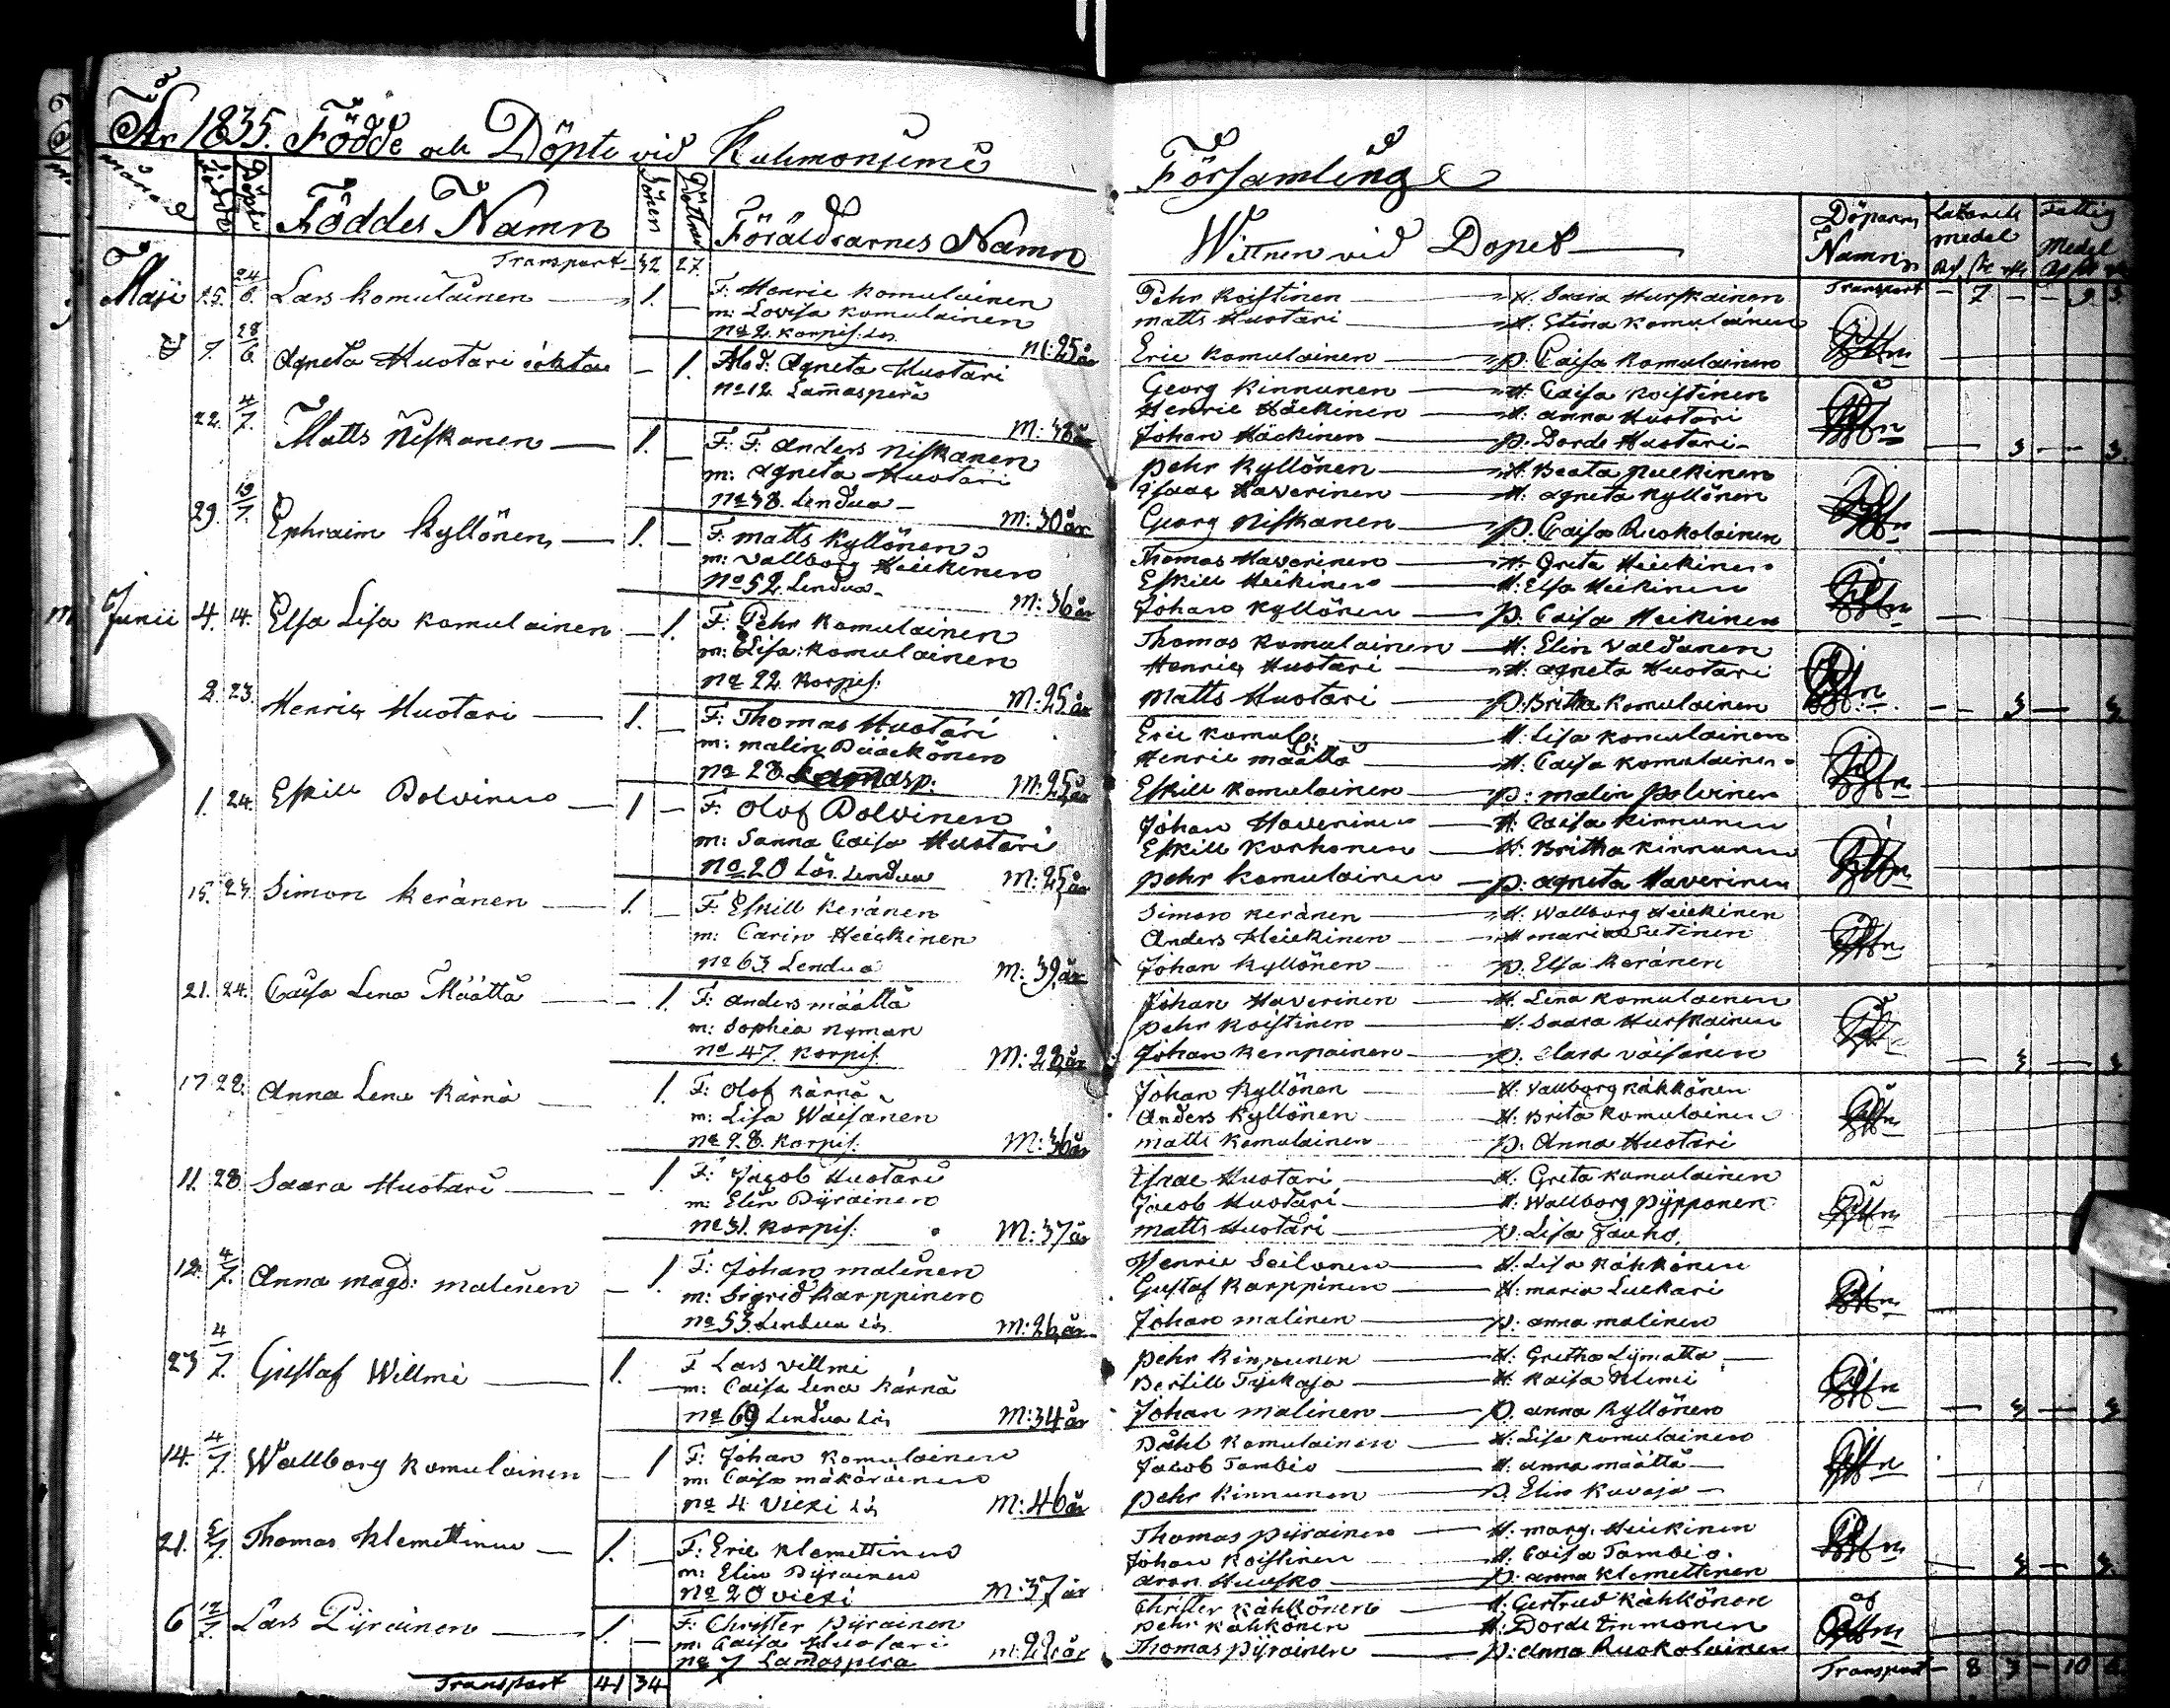 År 1835. Födde och Döpte vid Kuhmoniemi Församling
månad Födde Döpte Föddes Namn Söner Döttrar Föräldrarnes Namn Wittnen vid Dopet Döparens Namn Lazarets medel Fattig Medel
Transport 32 27. Transport 7 9 3
Maji 15. 24/6. Lars Komulainen 1. F: Henric Komulainen Pehr Koistinen H. Saara Hurskainen
m: Lovisa Komulainen Matts Huotari H. Stina Komulainen
No 2 Korpis. Lös M: 25 år Eric Komulainen p. Caisa Komulainen
7. 28/6 Agneta Huotari oäkta 1. Agneta Huotari Georg Kinnunen H. Caisa Koistinen
No 12 Lam̄asperä Henric Häckinen H: Anna Huotari
M: 38 år Johan Häckinen p. Dorde Huotari
22. 4/7. Matts Niskanen 1. F: F. Anders Niskanen Pehr Kyllönen H Beata
m: Agneta Huotari Isaac Haverinen H. Agneta Kyllönen
No 38. Lendua M: 30 år Georg Niskanen p. Caisa Ruokolainen
29. 19/7. Ephraim Kyllönen 1. F: Matts Kyllönen Thomas Haverinen H. Greta Heickinen
m: Vallborg Heickinen Eskill Heikinen H. Elsa Heikinen
No 52 Lendua M: 36 år Johan Kyllönen p. Caisa Heikinen
Junii 4. 14. Elsa Lisa Komulainen 1. F: Pehr Komulainen Thomas Komulainen H. Elin Valdanen
m: Lisa Komulainen Henric Huotari H. Agneta Huotari
No 22 Korpis. M: 25 år Matts Huotari p. Britha Komulainen 3 3
2. 23. Henric Huotari 1. F: Thomas Huotari Eric Komul: H. Lisa Komulainen
m: Malin Henric Määttä H. Caisa Komulainen
No 28. Lam̄asp. M: 25 år Eskill Komulainen p: Malin Polvinen
1. 24. Eskill Polvinen 1 F: Olof Polvinen Johan Haverinen H. Caisa Kinnunen
m: Sanna Caisa Huotari Eskill Korhonen H. Britha Kinnunen
No 20 Lös Lendua M: 25 år Pehr Komulainen p: Agneta Haverinen
15. 24. Simon Keränen 1. F: Eskill Keränen Simon Keränen H. Wallborg Heickinen
m: Carin Heickinen Anders Heickinen H Maria
No 63 Lendua M: 39 år Johan Kyllönen p. Elsa Keränen
21. 24. Caisa Lena Määttä 1. F: Anders Määttä Johan Haverinen H. Lena Komulainen
m: Sophia Nyman Pehr Koistinen H. Saara Hurskainen
No 47. Korpis. M: 28 år Johan Kempainen p. Clara Väisänen 3 3
17. 28. Anna Lena Kärnä 1. F: Olof Kärnä Johan Kyllönen H. Vallborg Kähkönen
m: Lisa Wäisänen Anders Kyllönen H. Brita Komulainen
No 28. Korpis. M: 36 år Matts Komulainen p: Anna Huotari
11. 28. Saara Huotari 1. F: Jacob Huotari Isac Huotari H. Greta Komulainen
m. Elin Pyräinen Jacob Huotari H. Wallborg Pypponen
No 31. Korpis. M: 37 år Matts Huotari p. Lisa Jauho.
12. 4/7. Anna Magd: Malinen 1. F: Johan Malinen Henric Seilonen H. Lisa Kähkönen
m: Sigrid Karppinen Gustaf Karppinen H. Maria
No 53. Lendua Lös M: 26 år Johan Malinen p: Anna Malinen
23 4/7. Gustaf Willmi 1. F Lars Villmi Pehr Kinnunen H. Gretha
m: Caisa Lena Kärnä Bertill H. Kaisa
No 69 Lendua Lös M: 34 år Johan Malinen p. Anna Kyllönen 3 3
14. 4/7. Wallborg Komulainen 1 F: Johan Komulainen Påhl Komulainen H. Lisa Komulainen
m: Caisa Mäkäräinen Jacob Tambio H. Anna Määttä
No 4 Viexi Lös M: 46 år Pehr Kinnunen p. Elin Kuvaja
21. 5/7. Thomas Klemettinen 1. F: Eric Klemettinen Thomas Pyräinen H. Marg. Heickinen
m: Elin Pyräinen Johan Koistinen H. Caisa Tambio.
No 20 Viexi M: 37 år Aron Huusko p: Anna Klemettinen 3 3.
6 12/7. Lars Pyräinen 1. F: Christer Pyräinen Christer Kähkönen H. Gertrud Kähkönen
m: Caisa Huotari Pehr Kähkönen H: Dorde Timmonen
No 7 Lam̄asperä M: 22 år Thomas Pyräinen p: Anna Ruokolainen
Transport 41 34 Transport 8 3 10 6